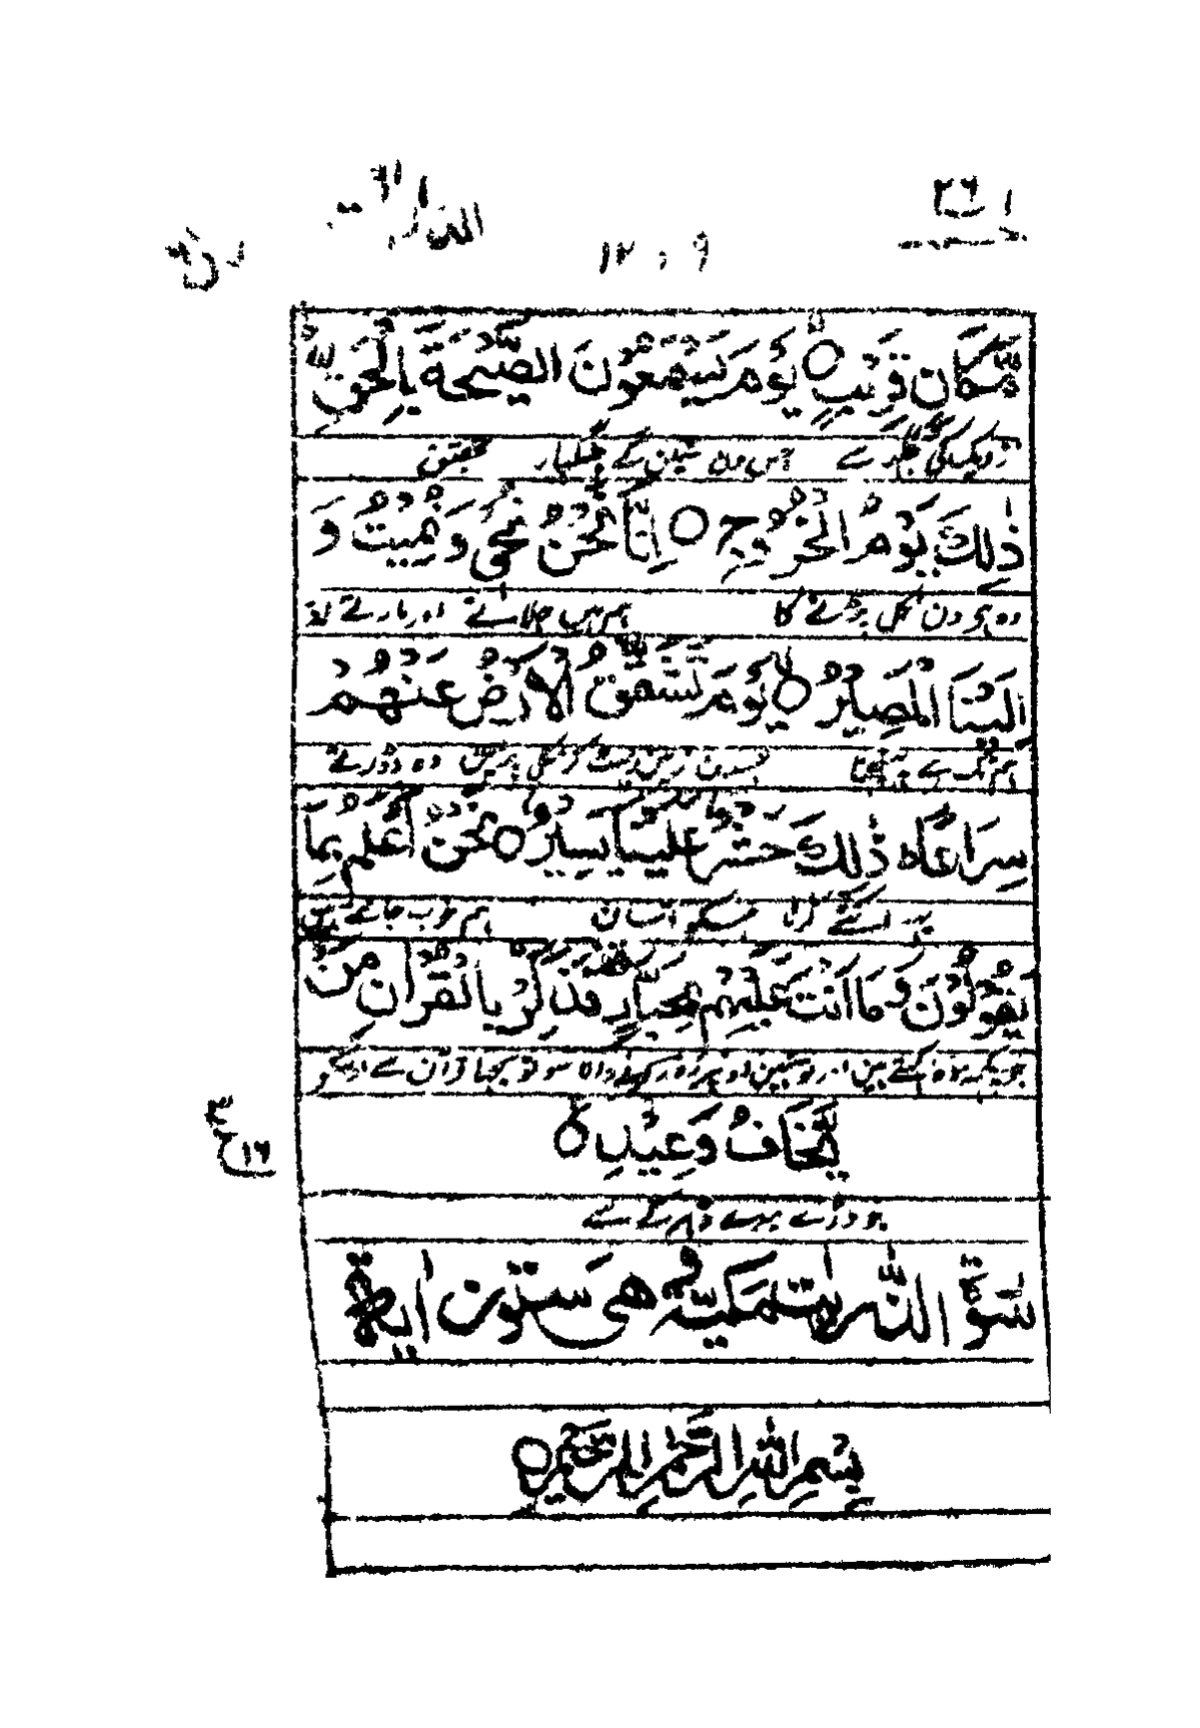 ٢٦
الذاریٰت
١٢٠٩
ق
مَّکَانٍ قَرِیْبٍ یَّوْمَ یَسْمَعُوْنَ الصَّیْحَةَ بِالْحَقِّ
نزدیک کی جگہ سے اس دن سنیں گے چنگہاڑ تحقیق
ذٰلِكَ یَوْمُ الْخُرُوْجِ اِنَّا نَحْنُ نُحْیٖ وَنُمِیْتُ وَ
وہ ہو دن نکل پڑنے کا ہم ہیں جلاتے اور مارتے اور
اِلَیْنَا الْمَصِیْرُ یَوْمَ تَشَقَّقُ الْاَرْضُ عَنْهُمْ
ہم تک ہے زمین پھٹ کر نکل پڑیں وہ دوڑتے
سِرَاعًا ذٰلِكَ حَشْرٌ عَلَیْنَا یَسِیْرٌ نَحْنُ اَعْلَمُ بِمَا
یہ اکٹھے کرنا ہمکو آسان ہم خوب جانتے ہیں
یَقُوْلُوْنَ وَمَا اَنْتَ عَلَیْهِمْ بِجَبَّارٍ فَذَکِّرْ بِالْقُرْاٰنِ مَنْ
جو یہ کہتے ہین اور تو نہین اونپر زور کرنے والا سو تو سمجھا قرآن سے اوسکو
یَّخَافُ وَعِیْدِ
ع ١٦
جو ڈرے میرے
سُوْرَةُ الذّٰرِیٰتِ مَکِّیَّةٌ وَهِیَ سِتُّوْنَ اٰیَةً
بِسْمِ اللّٰهِ الرَّحْمٰنِ الرَّحِیْمِ